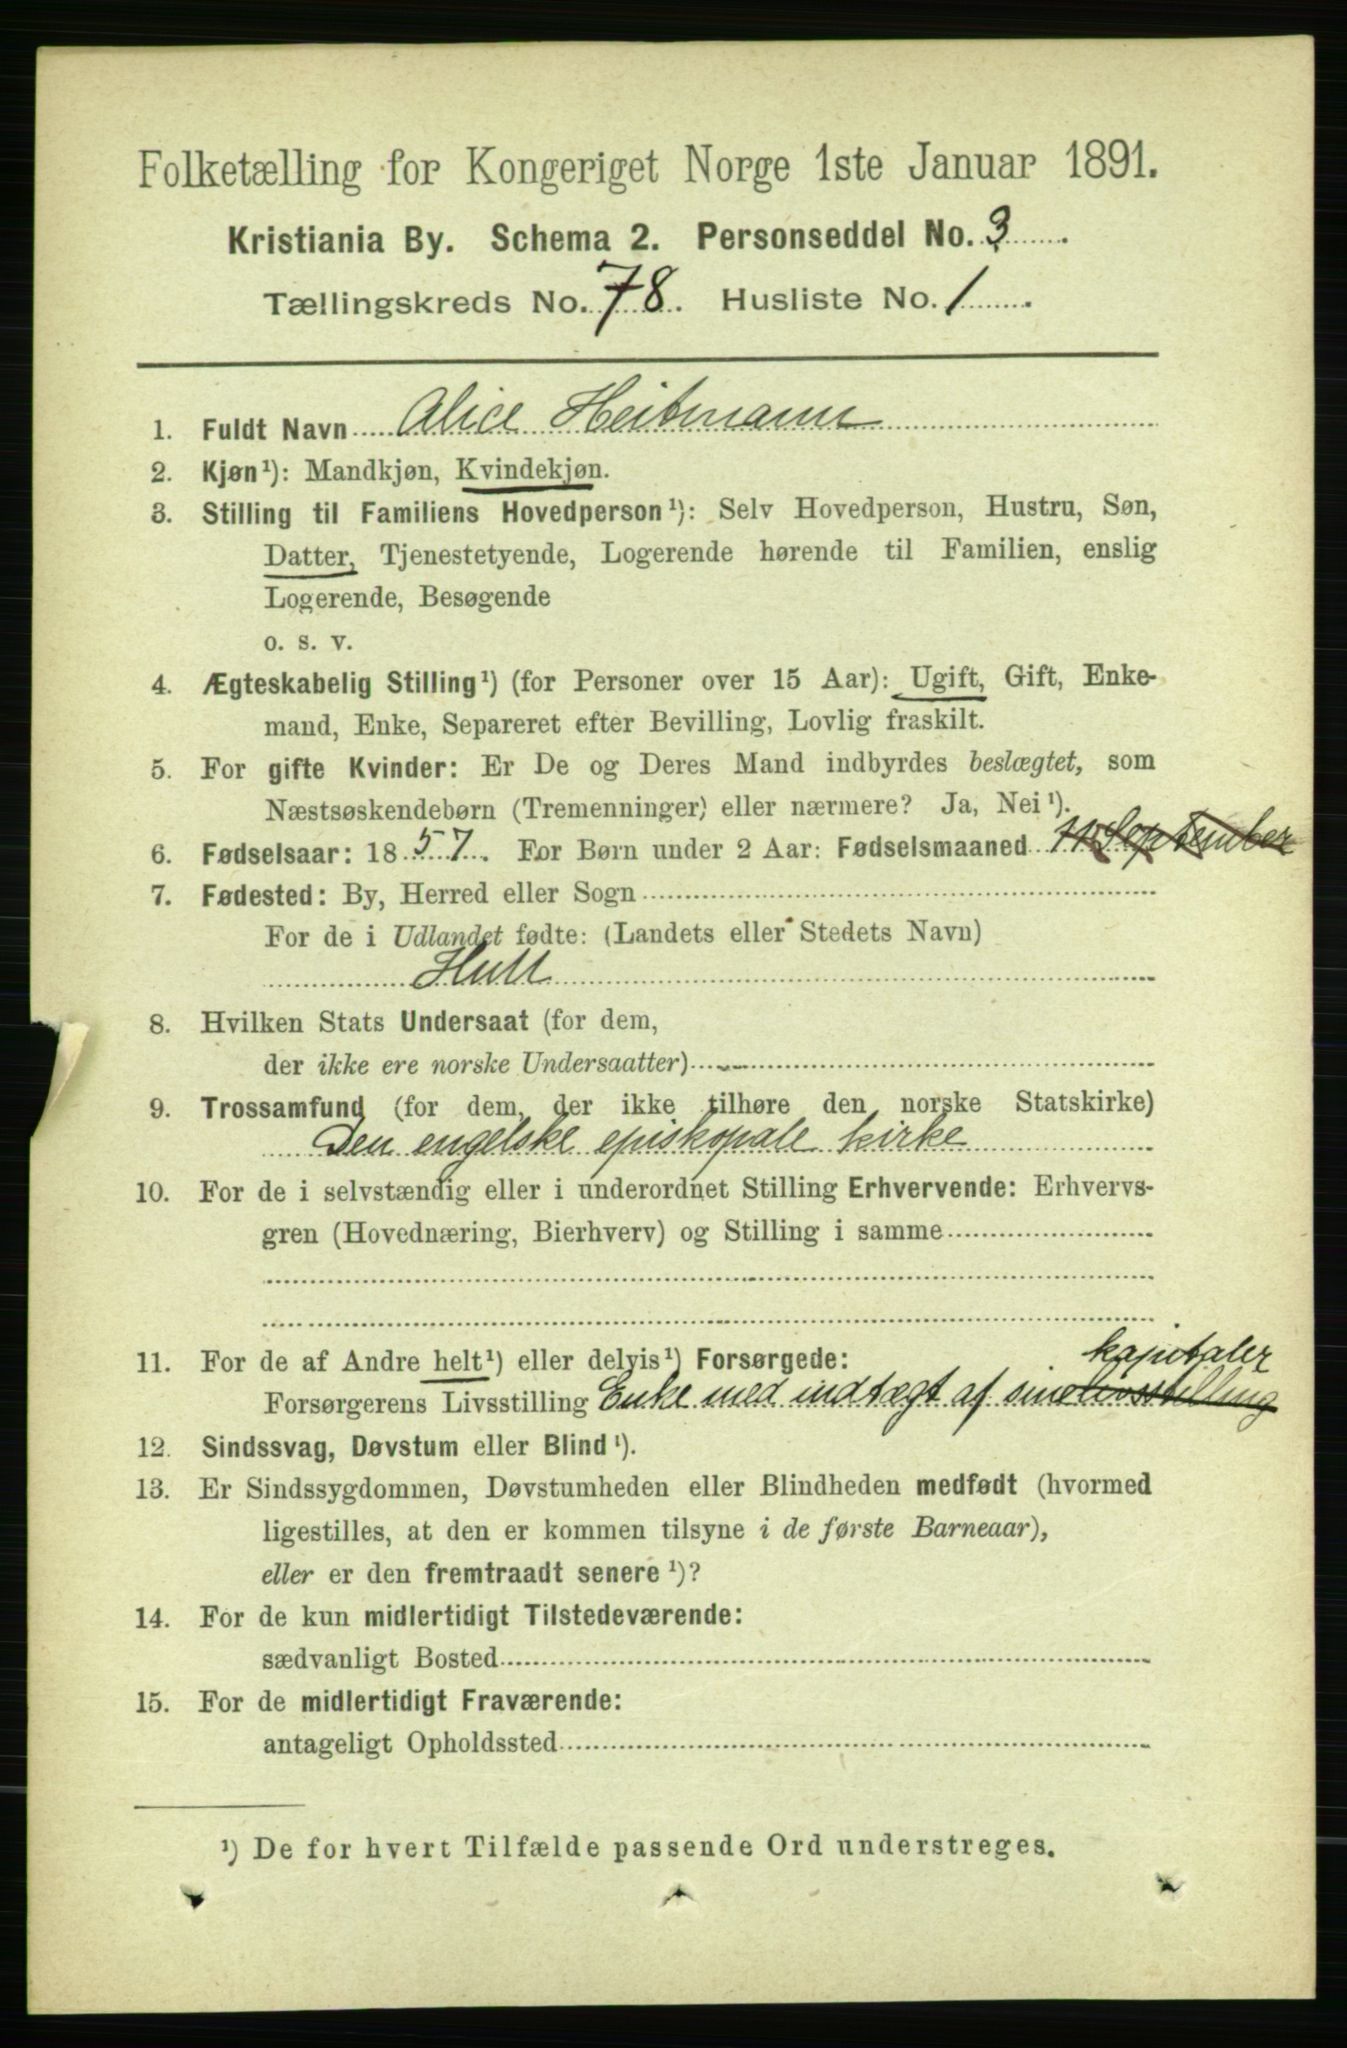 Folketælling for Kongeriget Norge 1ste Januar 1891.
Kristiania By. Schema 2. Personseddel No. 3
Tællingskreds No. 78. Husliste No. 1
1. Fuldt Navn Alice Heitmann
2. Kjøn¹): Mandkjøn, Kvindekjøn.
3. Stilling til Familiens Hovedperson¹): Selv Hovedperson, Hustru, Søn,
Datter, Tjenestetyende, Logerende hørende til Familien, enslig
Logerende, Besøgende
o. s. v.
4. Ægteskabelig Stilling¹) (for Personer over 15 Aar): Ugift, Gift, Enke-
mand, Enke, Separeret efter Bevilling, Lovlig fraskilt.
5. For gifte Kvinder: Er De og Deres Mand indbyrdes beslægtet, som
Næstsøskendebørn (Tremenninger) eller nærmere? Ja, Nei¹).
6. Fødselsaar: 1857. For Børn under 2 Aar: Fødselsmaaned September
7. Fødested: By, Herred eller Sogn
For de i Udlandet fødte: (Landets eller Stedets Navn)
Hull
8. Hvilken Stats Undersaat (for dem,
der ikke ere norske Undersaatter)
9. Trossamfund (for dem, der ikke tilhøre den norske Statskirke)
Den engelske episkopale kirke
10. For de i selvstændig eller i underordnet Stilling Erhvervende: Erhvervs-
gren (Hovednæring, Bierhverv) og Stilling i samme
11. For de af Andre helt¹) eller delvis¹) Forsørgede:
kapitaler
Forsørgerens Livsstilling Enke med indtægt af sine livsstilling
12. Sindssvag, Døvstum eller Blind¹).
13. Er Sindssygdommen, Døvstumheden eller Blindheden medfødt (hvormed
ligestilles, at den er kommen tilsyne i de første Barneaar),
eller er den fremtraadt senere¹)?
14. For de kun midlertidigt Tilstedeværende:
sædvanligt Bosted
15. For de midlertidigt Fraværende:
antageligt Opholdssted
¹) De for hvert Tilfælde passende Ord understreges.